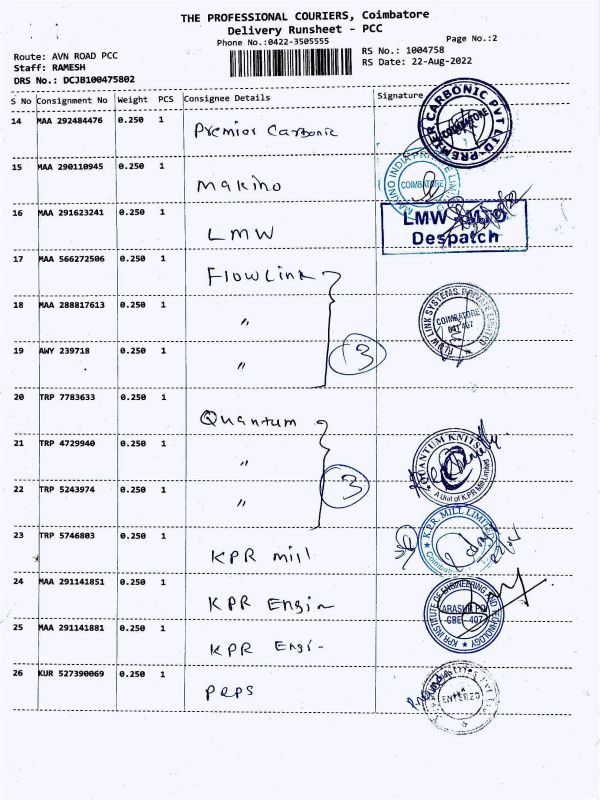 THE PROFESSIONAL COURIERS, Coimbatore
Delivery Runsheet - PCC
Phone No.:0422-3505555
Page No.:2
Route: AVN ROAD PCC
RS No.: 1004758
Staff: RAMESH
RS Date: 22-Aug-2022
DRS No.: DCJB100475802
S No Consignment No Weight PCS Consignee Details Signature
14 MAA 292484476 0.250 1 Premier Carbonic
PREMIER CARBONIC PVT LTD
COIMBATORE
15 MAA 290110945 0.250 1 Makino
MAKINO INDIA PRIVATE LIMITED
COIMBATORE
16 MAA 291623241 0.250 1 LMW
LMW
Despatch
17 MAA 566272506 0.250 1 FlowLink
18 MAA 288817613 0.250 1 "
FLOW LINK SYSTEMS PRIVATE LIMITED
COIMBATORE
641 407
19 AWY 239718 0.250 1 "
3
20 TRP 7783633 0.250 1 Quantum
21 TRP 4729940 0.250 1 "
QUANTUM KNITS
A Unit of K P R Mill Limited
22 TRP 5243974 0.250 1 "
3
23 TRP 5746803 0.250 1 KPR mill
K.P.R. MILL LIMITED
24 MAA 291141851 0.250 1 KPR Engin
KPR INSTITUTE OF ENGINEERING AND TECHNOLOGY
ARASUR PO
CBE - 407
25 MAA 291141881 0.250 1 KPR Engi-
26 KUR 527390069 0.250 1 PRPS
ENTERED